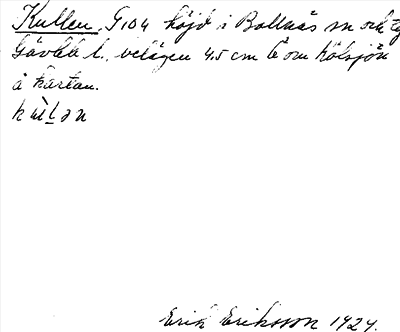 Kullen, G,04 höjd i Bollnäs sn och tg
Gävleb l., belägen 4.5 cm O om Kölsjön
å kartan.
kùlən
Erik Eriksson 1924.